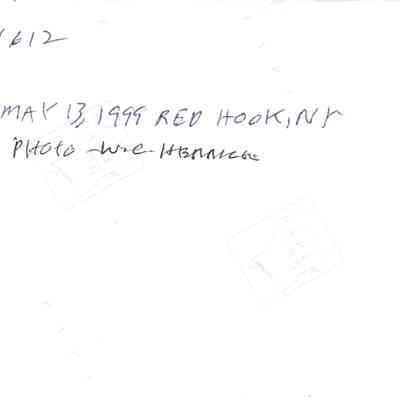 1612
MAY 13, 1999 RED HOOK, NY
PHOTO - W.C.